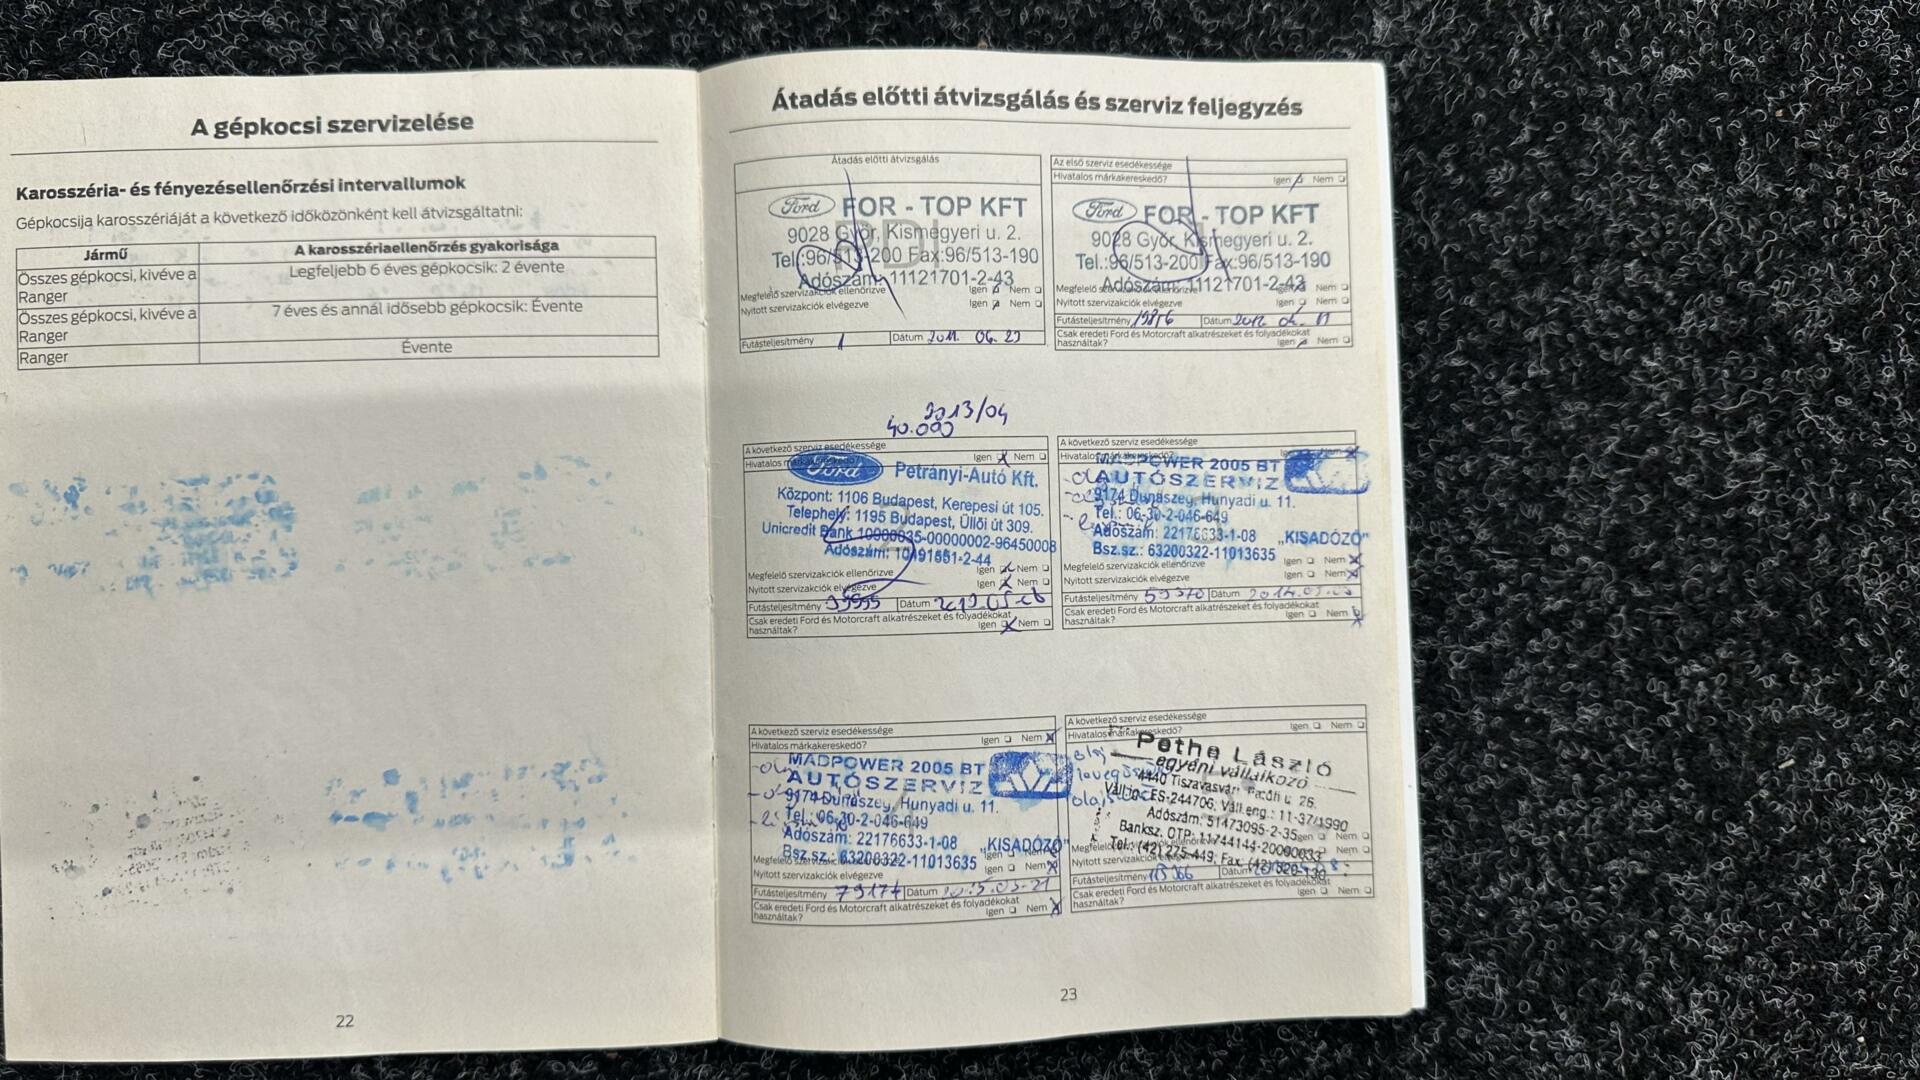 A gépkocsi szervizelése
Karosszéria- és fényezésellenőrzési intervallumok
Gépkocsija karosszériáját a következő időközönként kell átvizsgáltatni:
Jármű
A karosszériaellenőrzés gyakorisága
Összes gépkocsi, kivéve a
Ranger
Legfeljebb 6 éves gépkocsik: 2 évente
Összes gépkocsi, kivéve a
Ranger
7 éves és annál idősebb gépkocsik: Évente
Ranger
Évente
22
Átadás előtti átvizsgálás és szerviz feljegyzés
Átadás előtti átvizsgálás
Ford FOR - TOP KFT
9028 Győr, Kismegyeri u. 2.
Tel.:96/513-200 Fax:96/513-190
Adószám: 11121701-2-43
Megfelelő szervizakciók ellenőrizve Igen Nem
Nyitott szervizakciók elvégezve Igen Nem
Futásteljesítmény 1 Dátum 2011. 06. 29
Az első szerviz esedékessége
Hivatalos márkakereskedő? Igen Nem
Ford FOR - TOP KFT
9028 Győr, Kismegyeri u. 2.
Tel.:96/513-200 Fax:96/513-190
Adószám: 11121701-2-43
Megfelelő szervizakciók ellenőrizve Igen Nem
Nyitott szervizakciók elvégezve Igen Nem
Futásteljesítmény Dátum 2012.
Csak eredeti Ford és Motorcraft alkatrészeket és folyadékokat
használtak? Igen Nem
2013/04
40.000
A következő szerviz esedékessége
Hivatalos márkakereskedő? Igen Nem
Ford Petrányi-Autó Kft.
Központ: 1106 Budapest, Kerepesi út 105.
Telephely: 1195 Budapest, Üllői út 309.
Unicredit Bank 10900035-00000002-96450008
Adószám: 10491551-2-44
Megfelelő szervizakciók ellenőrizve Igen Nem
Nyitott szervizakciók elvégezve Igen Nem
Futásteljesítmény Dátum
Csak eredeti Ford és Motorcraft alkatrészeket és folyadékokat
használtak? Igen Nem
A következő szerviz esedékessége
Hivatalos márkakereskedő?
MADPOWER 2005 BT
AUTÓSZERVIZ
9174 Dunaszeg, Hunyadi u. 11.
Tel.: 06-30-2-046-649
Adószám: 22176633-1-08 „KISADÓZÓ"
Bsz.sz.: 63200322-11013635 Igen Nem
Megfelelő szervizakciók ellenőrizve
Nyitott szervizakciók elvégezve Igen Nem
Futásteljesítmény Dátum
Csak eredeti Ford és Motorcraft alkatrészeket és folyadékokat
használtak? Igen Nem
A következő szerviz esedékessége
Hivatalos márkakereskedő? Igen Nem
MADPOWER 2005 BT
AUTÓSZERVIZ
9174 Dunaszeg, Hunyadi u. 11.
Tel.: 06-30-2-046-649
Adószám: 22176633-1-08 „KISADÓZÓ"
Bsz.sz.: 63200322-11013635 Igen Nem
Megfelelő szervizakciók ellenőrizve
Nyitott szervizakciók elvégezve Igen Nem
Futásteljesítmény 79177 Dátum
Csak eredeti Ford és Motorcraft alkatrészeket és folyadékokat
használtak? Igen Nem
A következő szerviz esedékessége
Hivatalos márkakereskedő? Igen Nem
Pethe László
egyéni vállalkozó
4440 Tiszavasvári, Petőfi u. 26.
Váll.ig.: ES-244706, Váll.eng.: 11-37/1990
Adószám: 51473095-2-35
Banksz. OTP: 11744144-20000033
Tel.: (42) 275-449, Fax: (42) 520-130
Nyitott szervizakciók elvégezve
Futásteljesítmény Dátum
Csak eredeti Ford és Motorcraft alkatrészeket és folyadékokat
használtak? Igen Nem
23